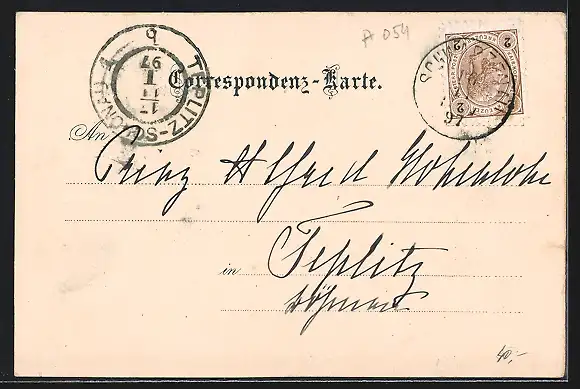 A 054
Correspondenz-Karte.
An
Prinz Alfred Hohenlohe
in Teplitz
Böhmen
TEPLITZ-SCHÖNAU 1
17
97
b
2
2
2
40,-